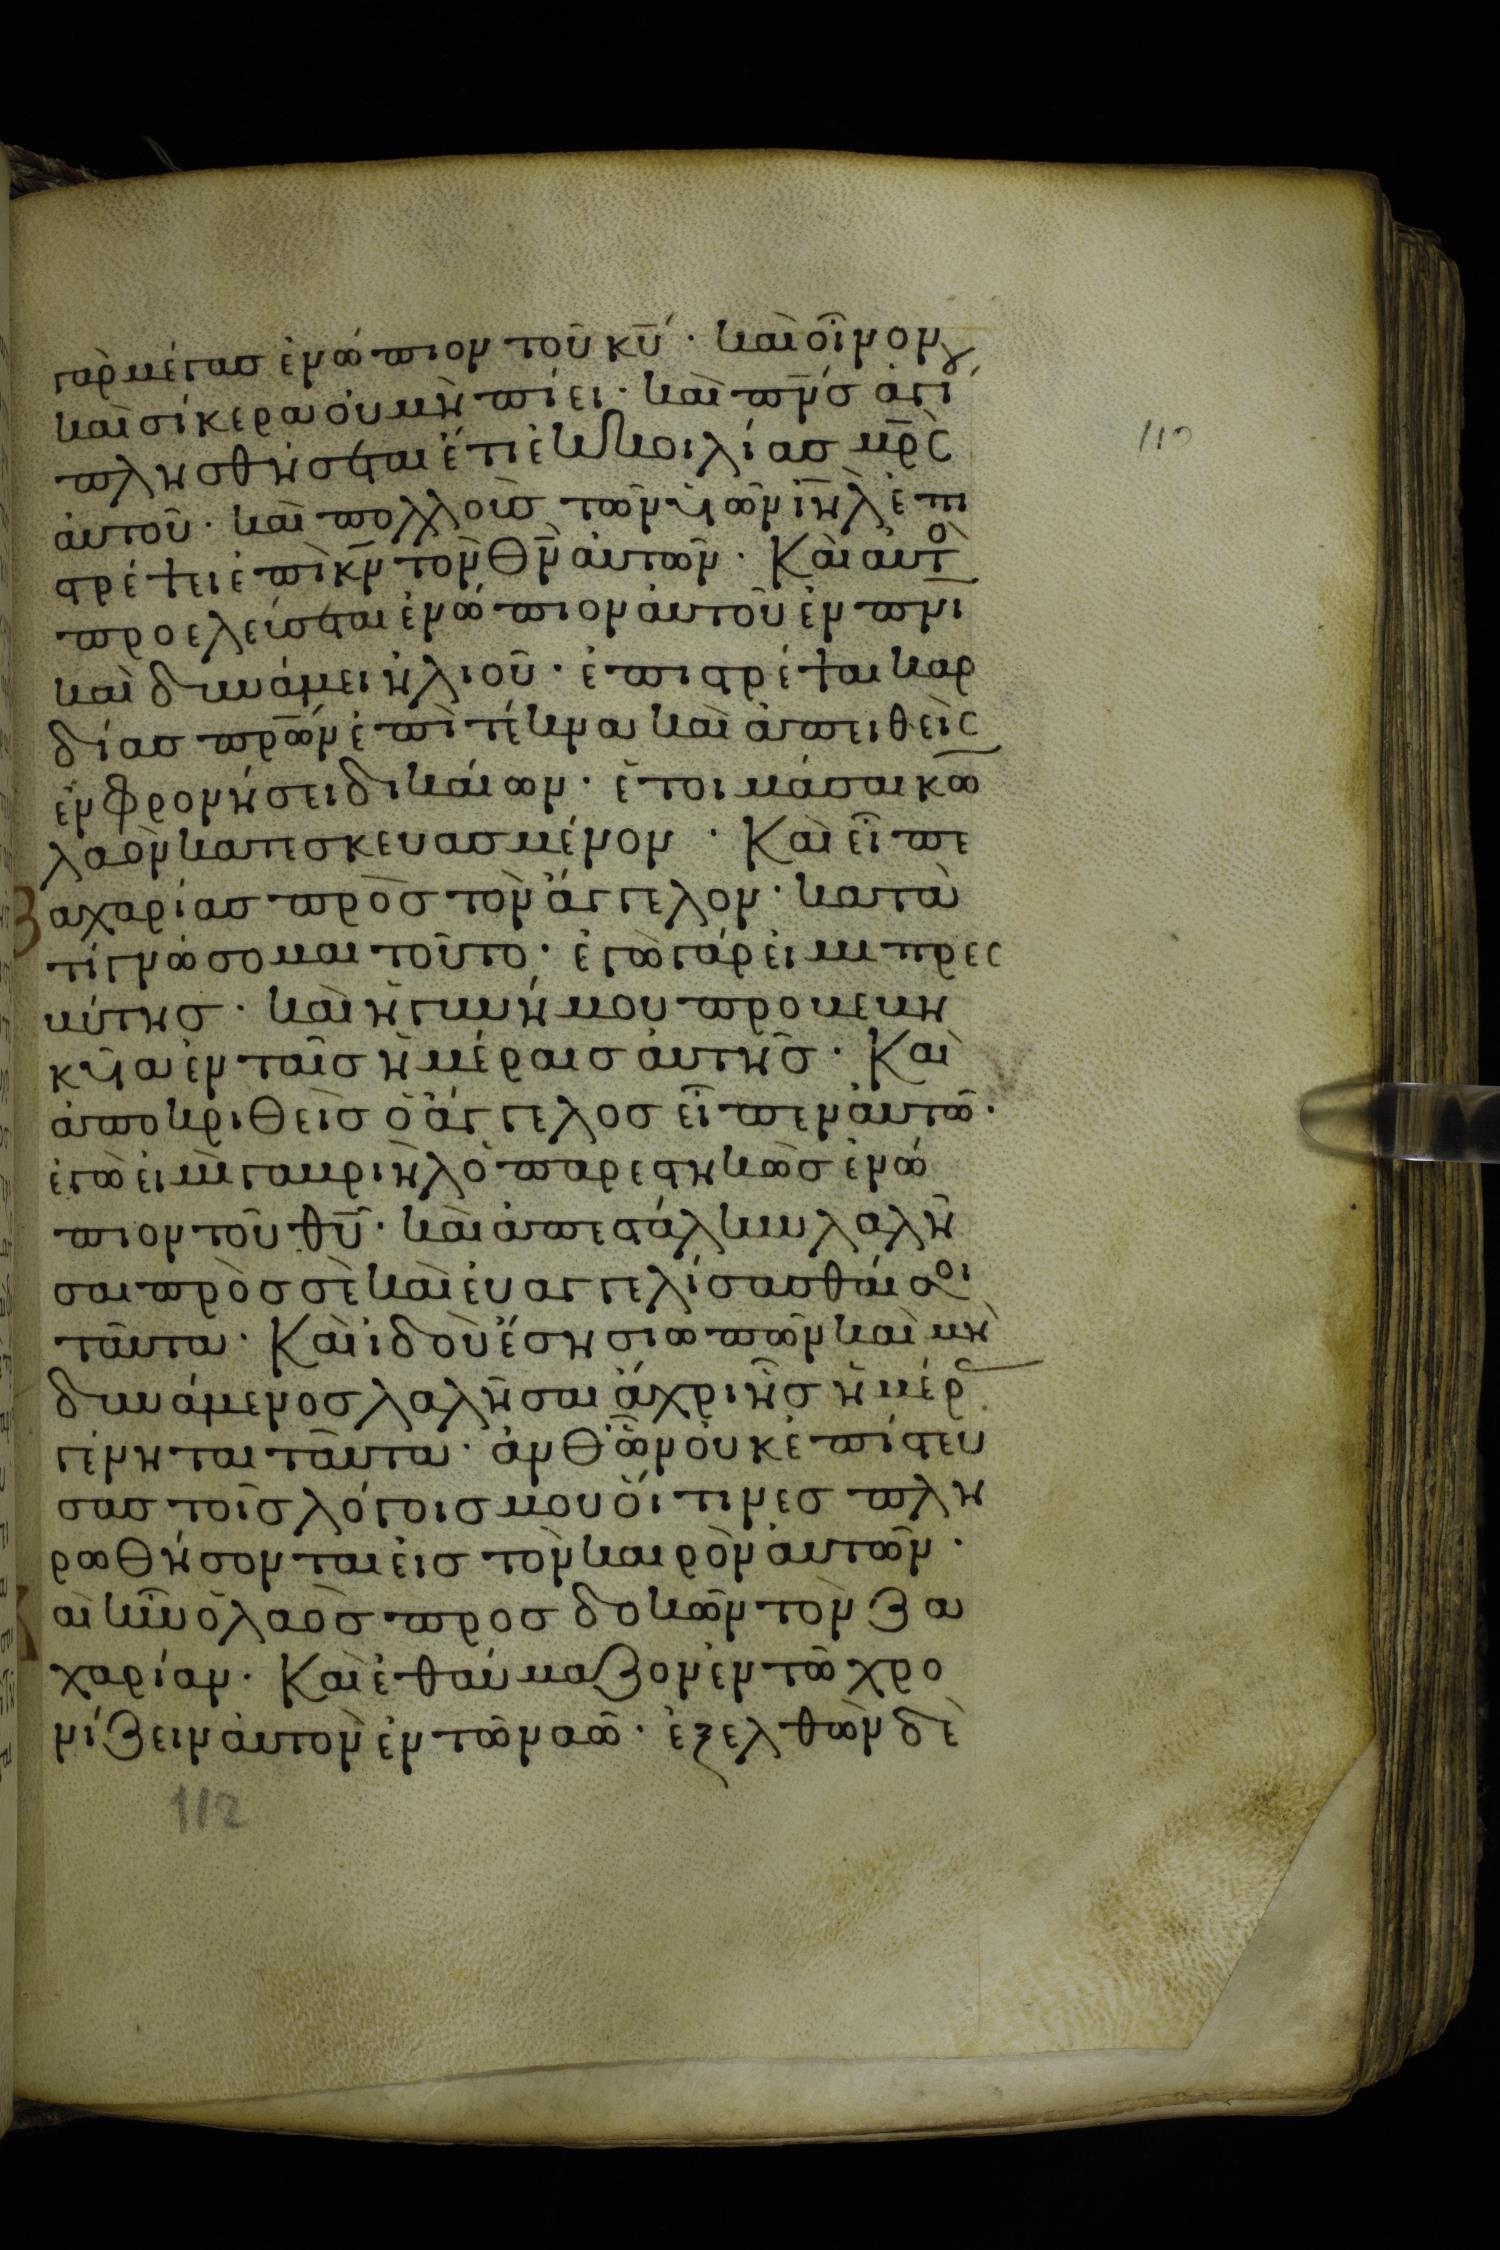 γὰρ μέγας ἐνώπιον τοῦ κῡ· καὶ οἶνον
καὶ σίκερα οὐ μὴ πίει· καὶ πν̅ς ἁγί
πλησθήσεται ἔτι ἐκ κοιλίας μρ̅ς
αὐτοῦ· καὶ πολλοὺς τῶν υἱῶν ιη̅λ ἐπι
στρέψει ἐπὶ κν̅ τὸν θν̅ αὐτῶν· Καὶ αὐτὸ
προελεύσεται ἐνώπιον αὐτοῦ ἐν πνι
καὶ δυνάμει ἡλιοῦ· ἐπιστρέψαι καρ
δίας πρ̅ων ἐπὶ τέκνα καὶ ἀπειθεῖς
ἐν φρονήσει δικαίων· ἑτοιμάσαι κω̅
λαὸν κατεσκευασμένον· Καὶ εἶπε
Ζαχαρίας πρὸς τὸν ἄγγελον· κατὰ
τί γνώσομαι τοῦτο· ἐγὼ γάρ εἰμι πρεσ
βύτης· καὶ ἡ γυνή μου προβεβη
κυῖα ἐν ταῖς ἡμέραις αὐτῆς· Καὶ
ἀποκριθεὶς ὁ ἄγγελος εἶπεν αὐτῶ·
ἐγὼ εἰμὶ γαβριὴλ ὁ παρεστηκὼς ἐνώ
πιον τοῦ θῡ· καὶ ἀπεστάλην λαλῆ
σαι πρὸς σὲ καὶ εὐαγγελίσασθαί σοι
ταῦτα· Καὶ ἰδοὺ ἔση σιωπῶν καὶ μὴ
δυνάμενος λαλῆσαι ἄχρι ἧς ἡμέρ
γένηται ταῦτα· ἀνθ ὧν οὐκ ἐπίστευ
σας τοῖς λόγοις μου οἵτινες πλη
ρωθήσονται εἰς τὸν καιρὸν αὐτῶν·
Καὶ ἦν ὁ λαὸς προσδοκῶν τὸν Ζα
χαρίαν· Καὶ ἐθαύμαζον ἐν τῶ χρο
νίζειν αὐτὸν ἐν τῶ ναῶ· ἐξελθὼν δὲ
110
112